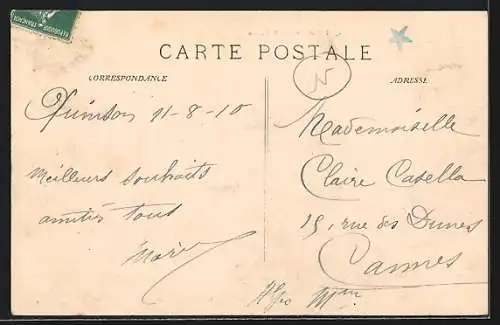 CARTE POSTALE
CORRESPONDANCE
Quinson 11-8-10
Meilleurs souhaits
amitiés tous
Marie
N
ADRESSE
Mademoiselle
Claire Casella
15, rue des Dunes
Cannes
Alpes Mmes